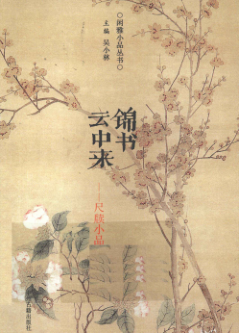 ○闲雅小品丛书○
主编 吴小林
锦书
云中来
——尺牍小品
古籍出版社